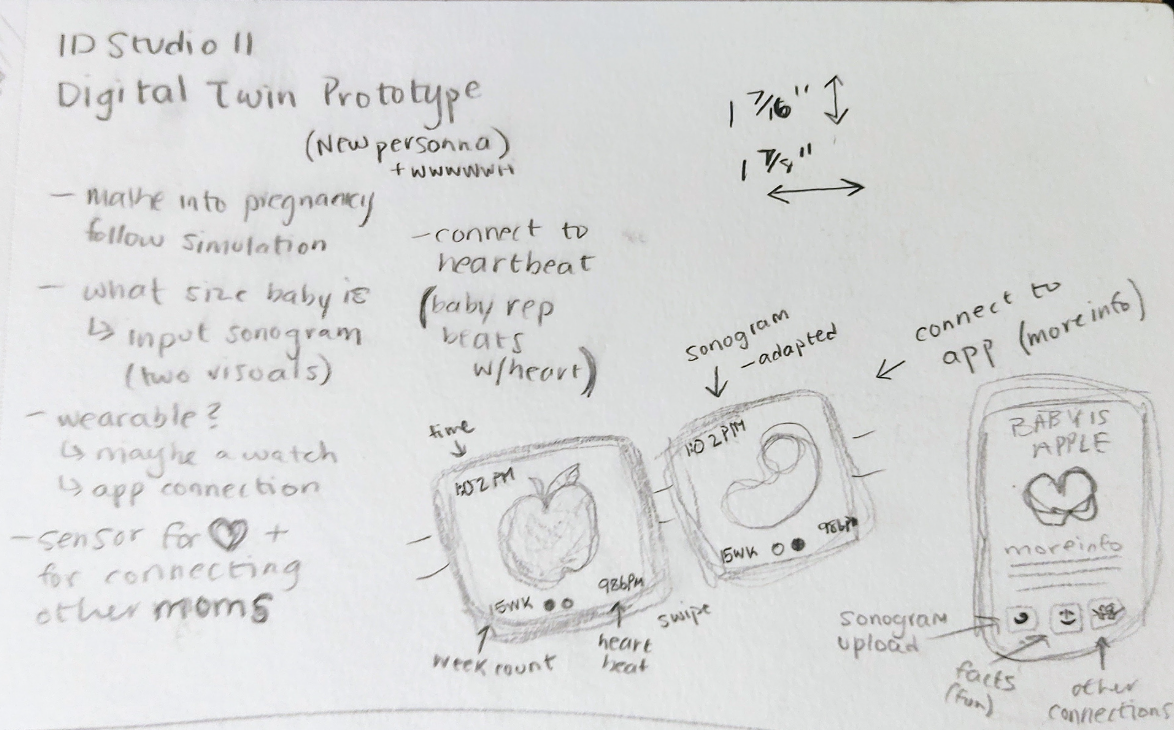 ID Studio II
Digital Twin Prototype
(New personna)
+ WWWWWH
- make into pregnancy
follow simulation
- what size baby is
↳ input sonogram
(two visuals)
- wearable?
↳ maybe a watch
↳ app connection
- sensor for ♡ +
for connecting
other moms
- connect to
heartbeat
(baby rep
beats
w/heart)
1 7/16" ↕
1 7/8"
↔
time
1:02 PM
15WK
98bPM
week count
heart
beat
swipe
sonogram
- adapted
1:02 PM
15WK
98bPM
← connect to
app (more info)
BABY IS
APPLE
more info
sonogram
upload
facts
(fun)
other
connections